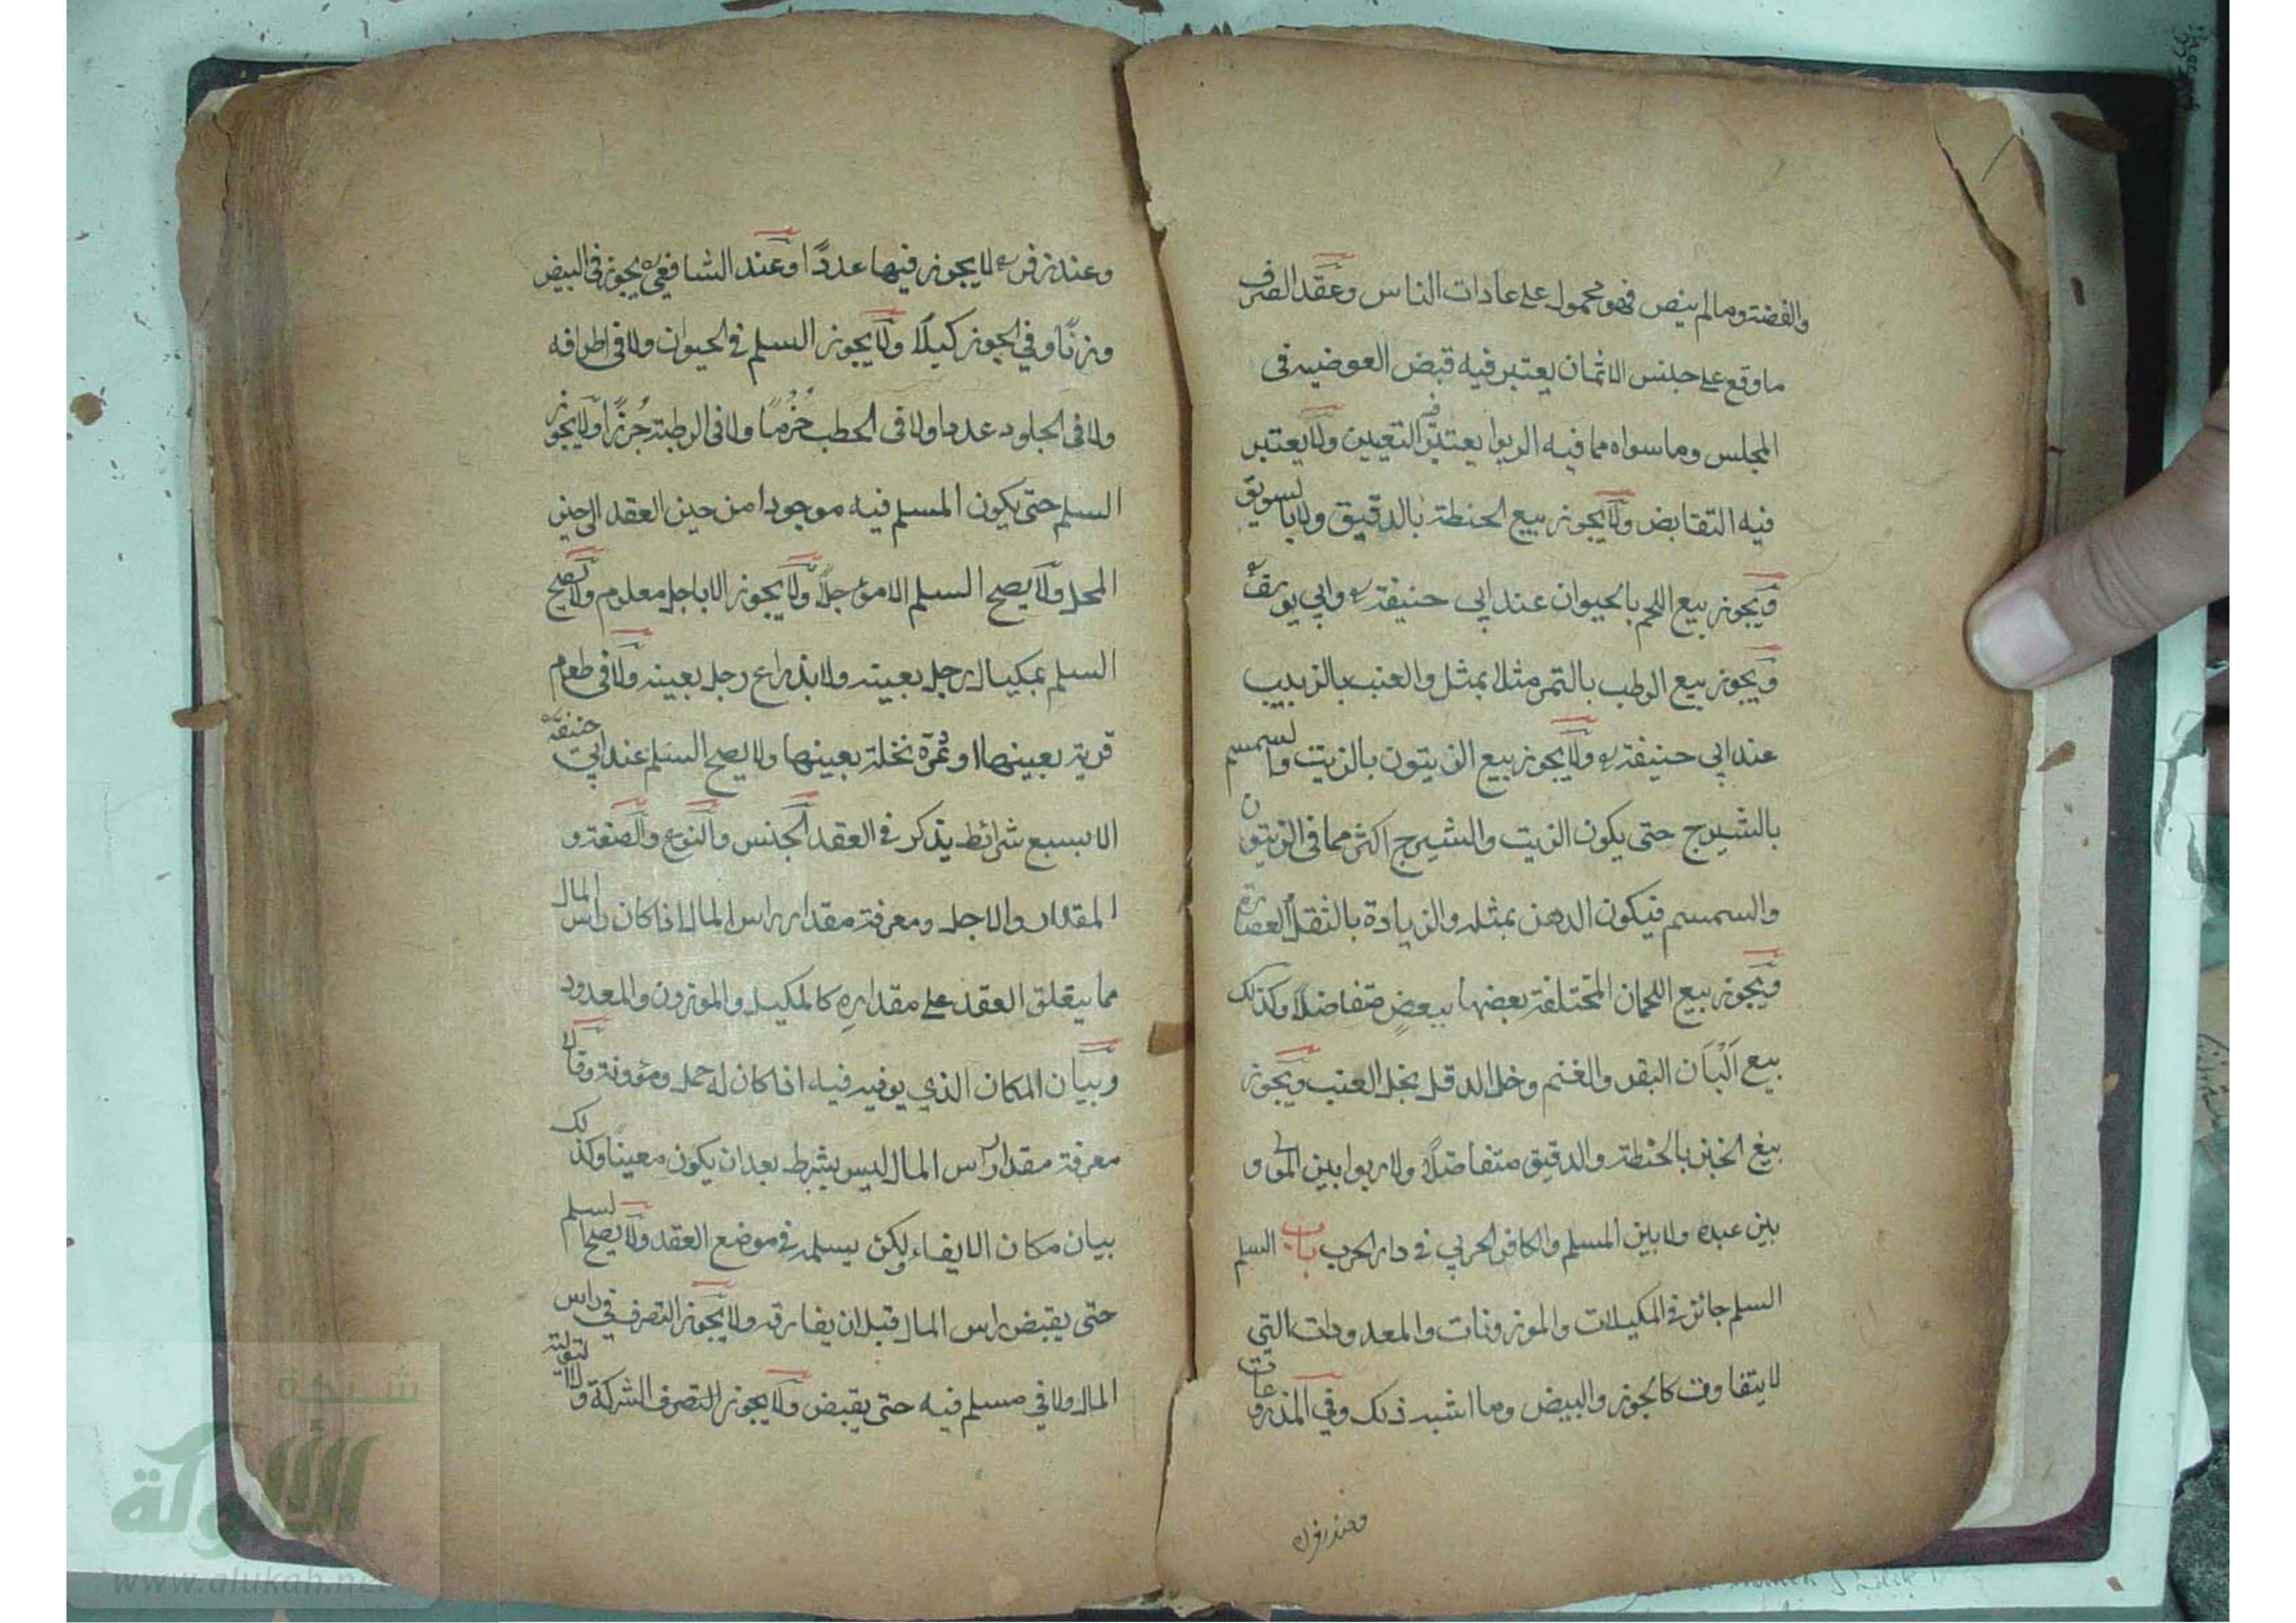 والفضة وما لم ينص فهو محمول على عادات الناس وعقد الصرف
ما وقع على جنس الاثمان يعتبر فيه قبض العوضيه فى
المجلس وما سواه مما فيه الربوا يعتبر فيه التعيين ولا يعتبر
فيه التقابض ولا يجوز بيع الحنطة بالدقيق ولا بالسويق
ويجوز بيع اللحم بالحيوان عند ابي حنيفة وابي يوسف
ويجوز بيع الرطب بالتمر مثلا بمثل والعنب بالزبيب
عند ابي حنيفة ولا يجوز بيع الزيتون بالزيت والسمسم
بالشيرج حتى يكون الزيت والشيرج اكثر مما فى الزيتون
والسمسم فيكون الدهن بمثله والزيادة بالثقل العصارة
ويجوز بيع اللحمان المختلفة بعضها ببعض متفاضلا وكذلك
بيع البان البقر والغنم وخل الدقل بخل العنب ويجوز
بيع الخبز بالحنطة والدقيق متفاضلا ولا ربوا بين المولى و
بين عبده ولا بين المسلم والكافر الحربي في دار الحرب باب السلم
السلم جائز في المكيلات والموزونات والمعدودات التي
لا يتفاوت كالجوز والبيض وما اشبه ذلك وفي المذروعات
وعند زفر
وعند زفر لا يجوز فيها عددا وعند الشافعي يجوز فى البيض
وزنا وفي الجوز كيلا ولا يجوز السلم في الحيوان ولا فى اطرافه
ولا فى الجلود عددا ولا فى الحطب حُزُمًا ولا فى الرطبة جُرُزًا ولا يجوز
السلم حتى يكون المسلم فيه موجودا من حين العقد الى حين
المحل ولا يصح السلم الا مؤجلا ولا يجوز الا باجل معلوم ولا يصح
السلم بمكيال رجل بعينه ولا بذراع رجل بعينه ولا فى طعام
قرية بعينها او ثمرة نخلة بعينها ولا يصح السلم عند ابي حنيفة
الا بسبع شرائط يذكر في العقد الجنس والنوع والصفة و
المقدار والاجل ومعرفة مقدار راس المال اذا كان راس المال
مما يتعلق العقد على مقداره كالمكيل والموزون والمعدود
وبيان المكان الذي يوفيه فيه اذا كان له حمل ومؤونة وقالا
معرفة مقدار راس المال ليس بشرط بعد ان يكون معينا وكذلك
بيان مكان الايفاء ولكن يسلمه في موضع العقد ولا يصح السلم
حتى يقبض راس المال قبل ان يفارقه ولا يجوز التصرف في راس
المال ولا في مسلم فيه حتى يقبض ولا يجوز التصرف الشركة ولا التولية
شبكة
الألوكة
www.alukah.net